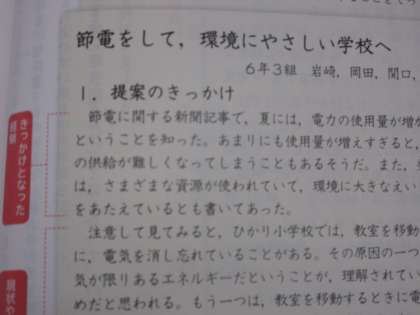 節電をして，環境にやさしい学校へ
6年3組　岩崎，岡田，関口，
1．提案のきっかけ
節電に関する新聞記事で，夏には，電力の使用量が増か
ということを知った。あまりにも使用量が増えすぎると，
の供給が難しくなってしまうこともあるそうだ。また，
は，さまざまな資源が使われていて，環境に大きなえい
をあたえているとも書いてあった。
注意して見てみると，ひかり小学校では，教室を移動
に，電気を消し忘れていることがある。その原因の一つ
気が限りあるエネルギーだということが，理解されてい
めだと思われる。もう一つは，教室を移動するときに電
きっかけとなった
経験
現状や